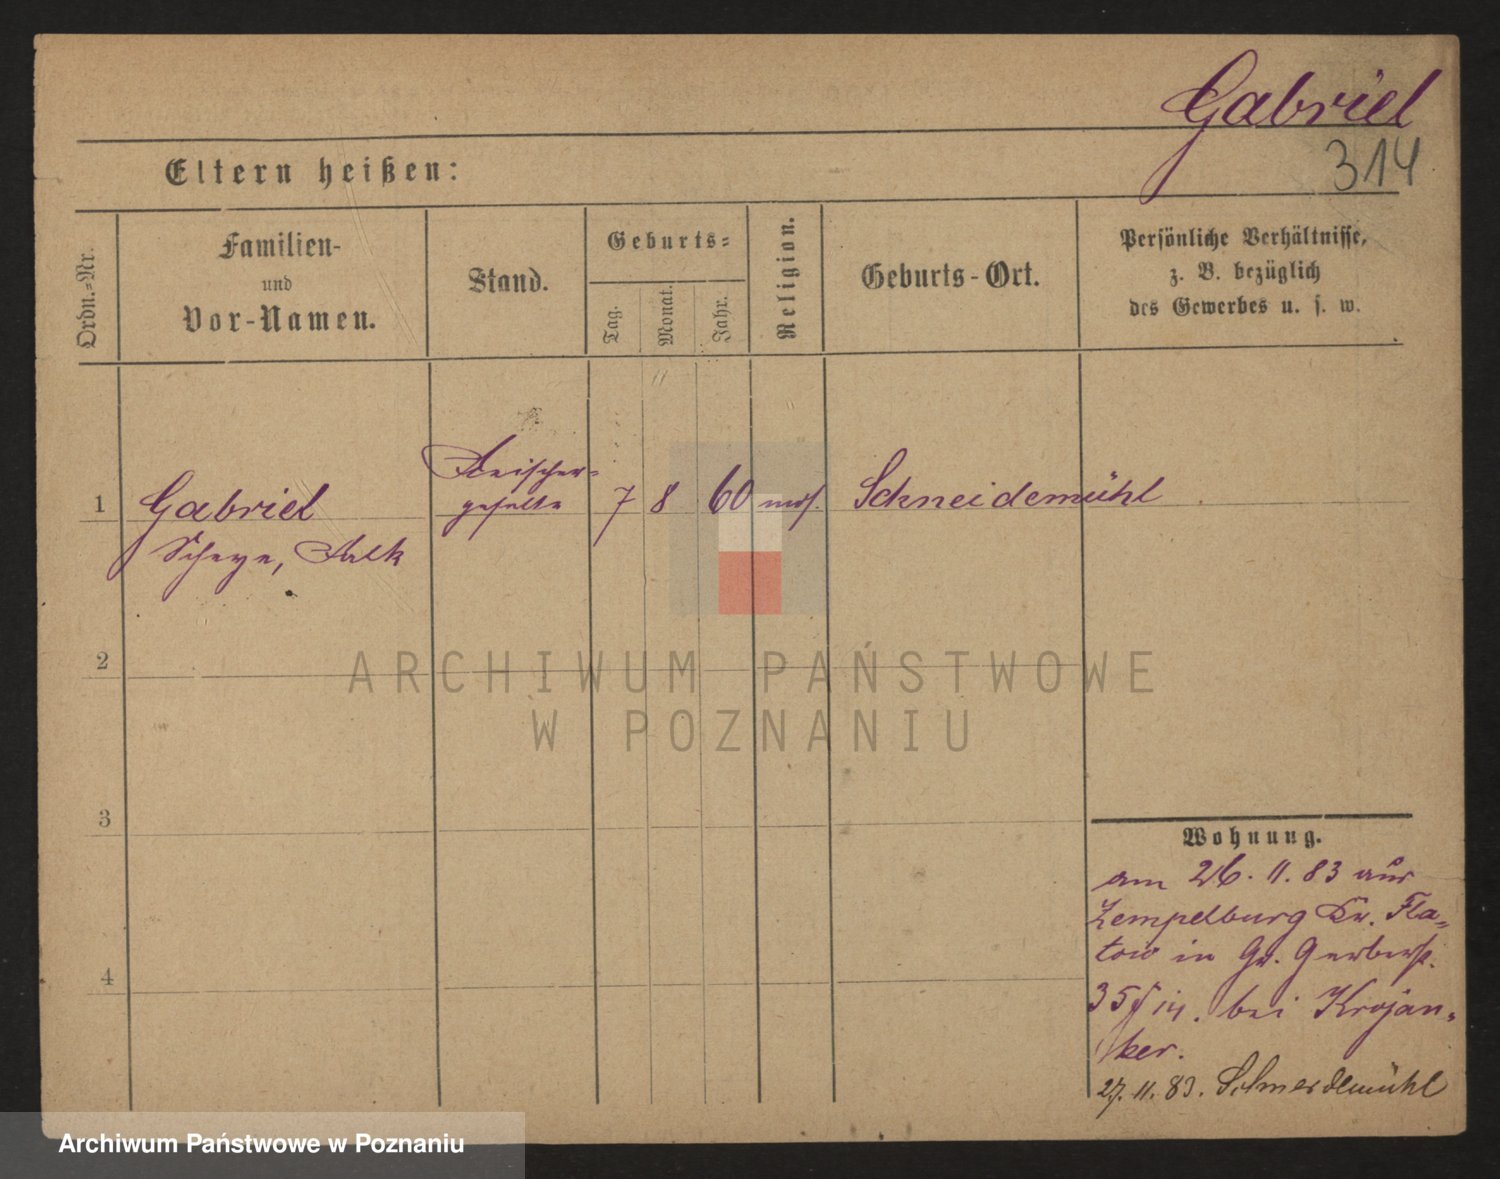 Gabriel
314
Eltern heißen:
Ordn.=Nr.
Familien-
und
Vor-Namen.
Stand.
Geburts=
Tag.
Monat.
Jahr.
Religion.
Geburts-Ort.
Persönliche Verhältnisse,
z. B. bezüglich
des Gewerbes u. s. w.
1
Gabriel
Scheye, Falk
Fleischer-
geselle
7
8
60
mos.
Schneidemühl
2
3
4
Wohnung.
am 26. 11. 83 aus
Zempelburg Kr. Fla-
tow in Gr. Gerberst.
35 bei Krojan-
ker.
27. 11. 83. Schneidemühl
ARCHIWUM PAŃSTWOWE
W POZNANIU
Archiwum Państwowe w Poznaniu